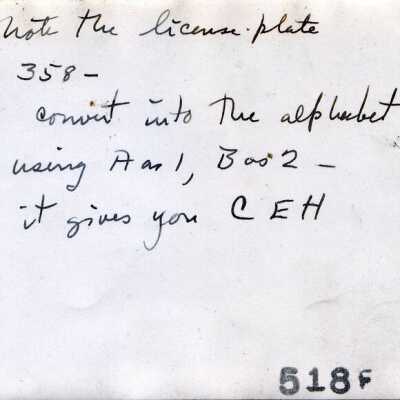 Note the license plate
358 –
convert into the alphabet
using A as 1, B as 2 –
it gives you C E H
518F